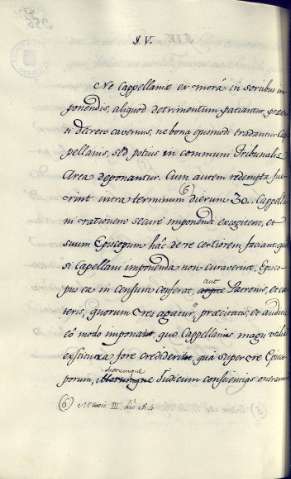 §. V.
Ne Cappellaniæ ex morâ in sortibus im
ponendis, aliquod detrimentum patiantur,
si decreto cavemus, ne bona ejusmodi tradantur Cap
pellanis, sed potius in communi Tribunalis
Arca deponantur. Cum autem redempta fue
rint intra terminum dierum 30. Cappella
ni rationem secure imponendi exagitent, et
suum Episcopum hâc de re certiorem faciant; quod
si Capellani imponenda non curaverint, Episco
pus ea in censum conferat, aut Patronis, et ca
teris, quorum res agatur, præcitatis, et auditis
eô modo imponat, quo Cappellaniæ magis valida
crediderit, quâ super re Episco
porum, Judicum conscientias oneramus
(6)